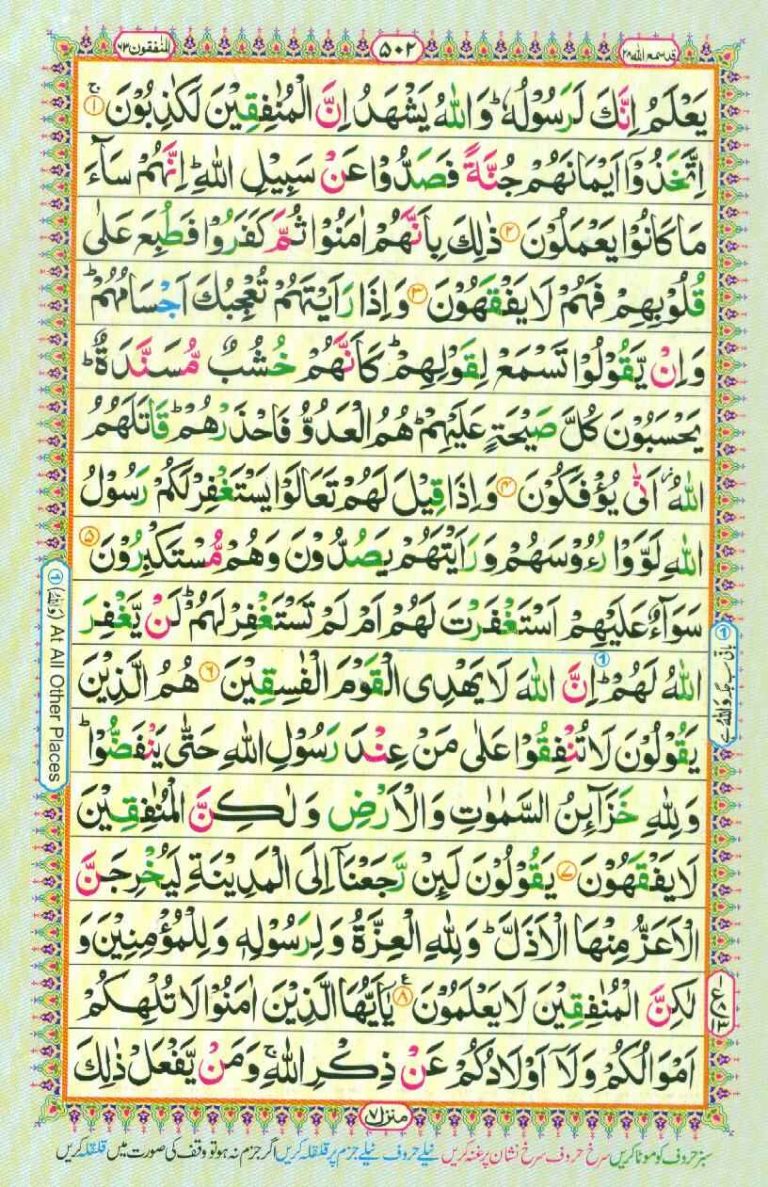 قد سمع الله ٢٨
٥٠٢
المنفقون ٦٣
يَعْلَمُ اِنَّكَ لَرَسُوْلُهٗ ؕ وَاللّٰهُ يَشْهَدُ اِنَّ الْمُنٰفِقِيْنَ لَكٰذِبُوْنَ ۚ ۱
اِتَّخَذُوْۤا اَيْمَانَهُمْ جُنَّةً فَصَدُّوْا عَنْ سَبِيْلِ اللّٰهِ ؕ اِنَّهُمْ سَآءَ
مَا كَانُوْا يَعْمَلُوْنَ ۲ ذٰلِكَ بِاَنَّهُمْ اٰمَنُوْا ثُمَّ كَفَرُوْا فَطُبِعَ عَلٰى
قُلُوْبِهِمْ فَهُمْ لَا يَفْقَهُوْنَ ۳ وَاِذَا رَاَيْتَهُمْ تُعْجِبُكَ اَجْسَامُهُمْ ؕ
وَاِنْ يَّقُوْلُوْا تَسْمَعْ لِقَوْلِهِمْ ؕ كَاَنَّهُمْ خُشُبٌ مُّسَنَّدَةٌ ؕ
يَحْسَبُوْنَ كُلَّ صَيْحَةٍ عَلَيْهِمْ ؕ هُمُ الْعَدُوُّ فَاحْذَرْهُمْ ؕ قَاتَلَهُمُ
اللّٰهُ ؗ اَنّٰى يُؤْفَكُوْنَ ۴ وَاِذَا قِيْلَ لَهُمْ تَعَالَوْا يَسْتَغْفِرْ لَكُمْ رَسُوْلُ
اللّٰهِ لَوَّوْا رُءُوْسَهُمْ وَرَاَيْتَهُمْ يَصُدُّوْنَ وَهُمْ مُّسْتَكْبِرُوْنَ ۵
سَوَآءٌ عَلَيْهِمْ اَسْتَغْفَرْتَ لَهُمْ اَمْ لَمْ تَسْتَغْفِرْ لَهُمْ ؕ لَنْ يَّغْفِرَ
اللّٰهُ لَهُمْ ؕ اِنَّ اللّٰهَ لَا يَهْدِى الْقَوْمَ الْفٰسِقِيْنَ ۶ هُمُ الَّذِيْنَ
يَقُوْلُوْنَ لَا تُنْفِقُوْا عَلٰى مَنْ عِنْدَ رَسُوْلِ اللّٰهِ حَتّٰى يَنْفَضُّوْا ؕ
وَلِلّٰهِ خَزَآئِنُ السَّمٰوٰتِ وَالْاَرْضِ وَلٰكِنَّ الْمُنٰفِقِيْنَ
لَا يَفْقَهُوْنَ ۷ يَقُوْلُوْنَ لَئِنْ رَّجَعْنَاۤ اِلَى الْمَدِيْنَةِ لَيُخْرِجَنَّ
الْاَعَزُّ مِنْهَا الْاَذَلَّ ؕ وَلِلّٰهِ الْعِزَّةُ وَلِرَسُوْلِهٖ وَلِلْمُؤْمِنِيْنَ وَ
لٰكِنَّ الْمُنٰفِقِيْنَ لَا يَعْلَمُوْنَ ۸ يٰۤاَيُّهَا الَّذِيْنَ اٰمَنُوْا لَا تُلْهِكُمْ
اَمْوَالُكُمْ وَلَاۤ اَوْلَادُكُمْ عَنْ ذِكْرِ اللّٰهِ ۚ وَمَنْ يَّفْعَلْ ذٰلِكَ
منزل ۷
سبز حروف کو موٹا کریں سرخ حروف سرخ نشان پر غنہ کریں نیلے حروف نیلے جزم پر قلقلہ کریں اگر جزم نہ ہو تو وقف کی صورت میں قلقلہ کریں
① (وَاللّٰهُ) At All Other Places
① باقی سب جگہ وَاللّٰهُ ہے